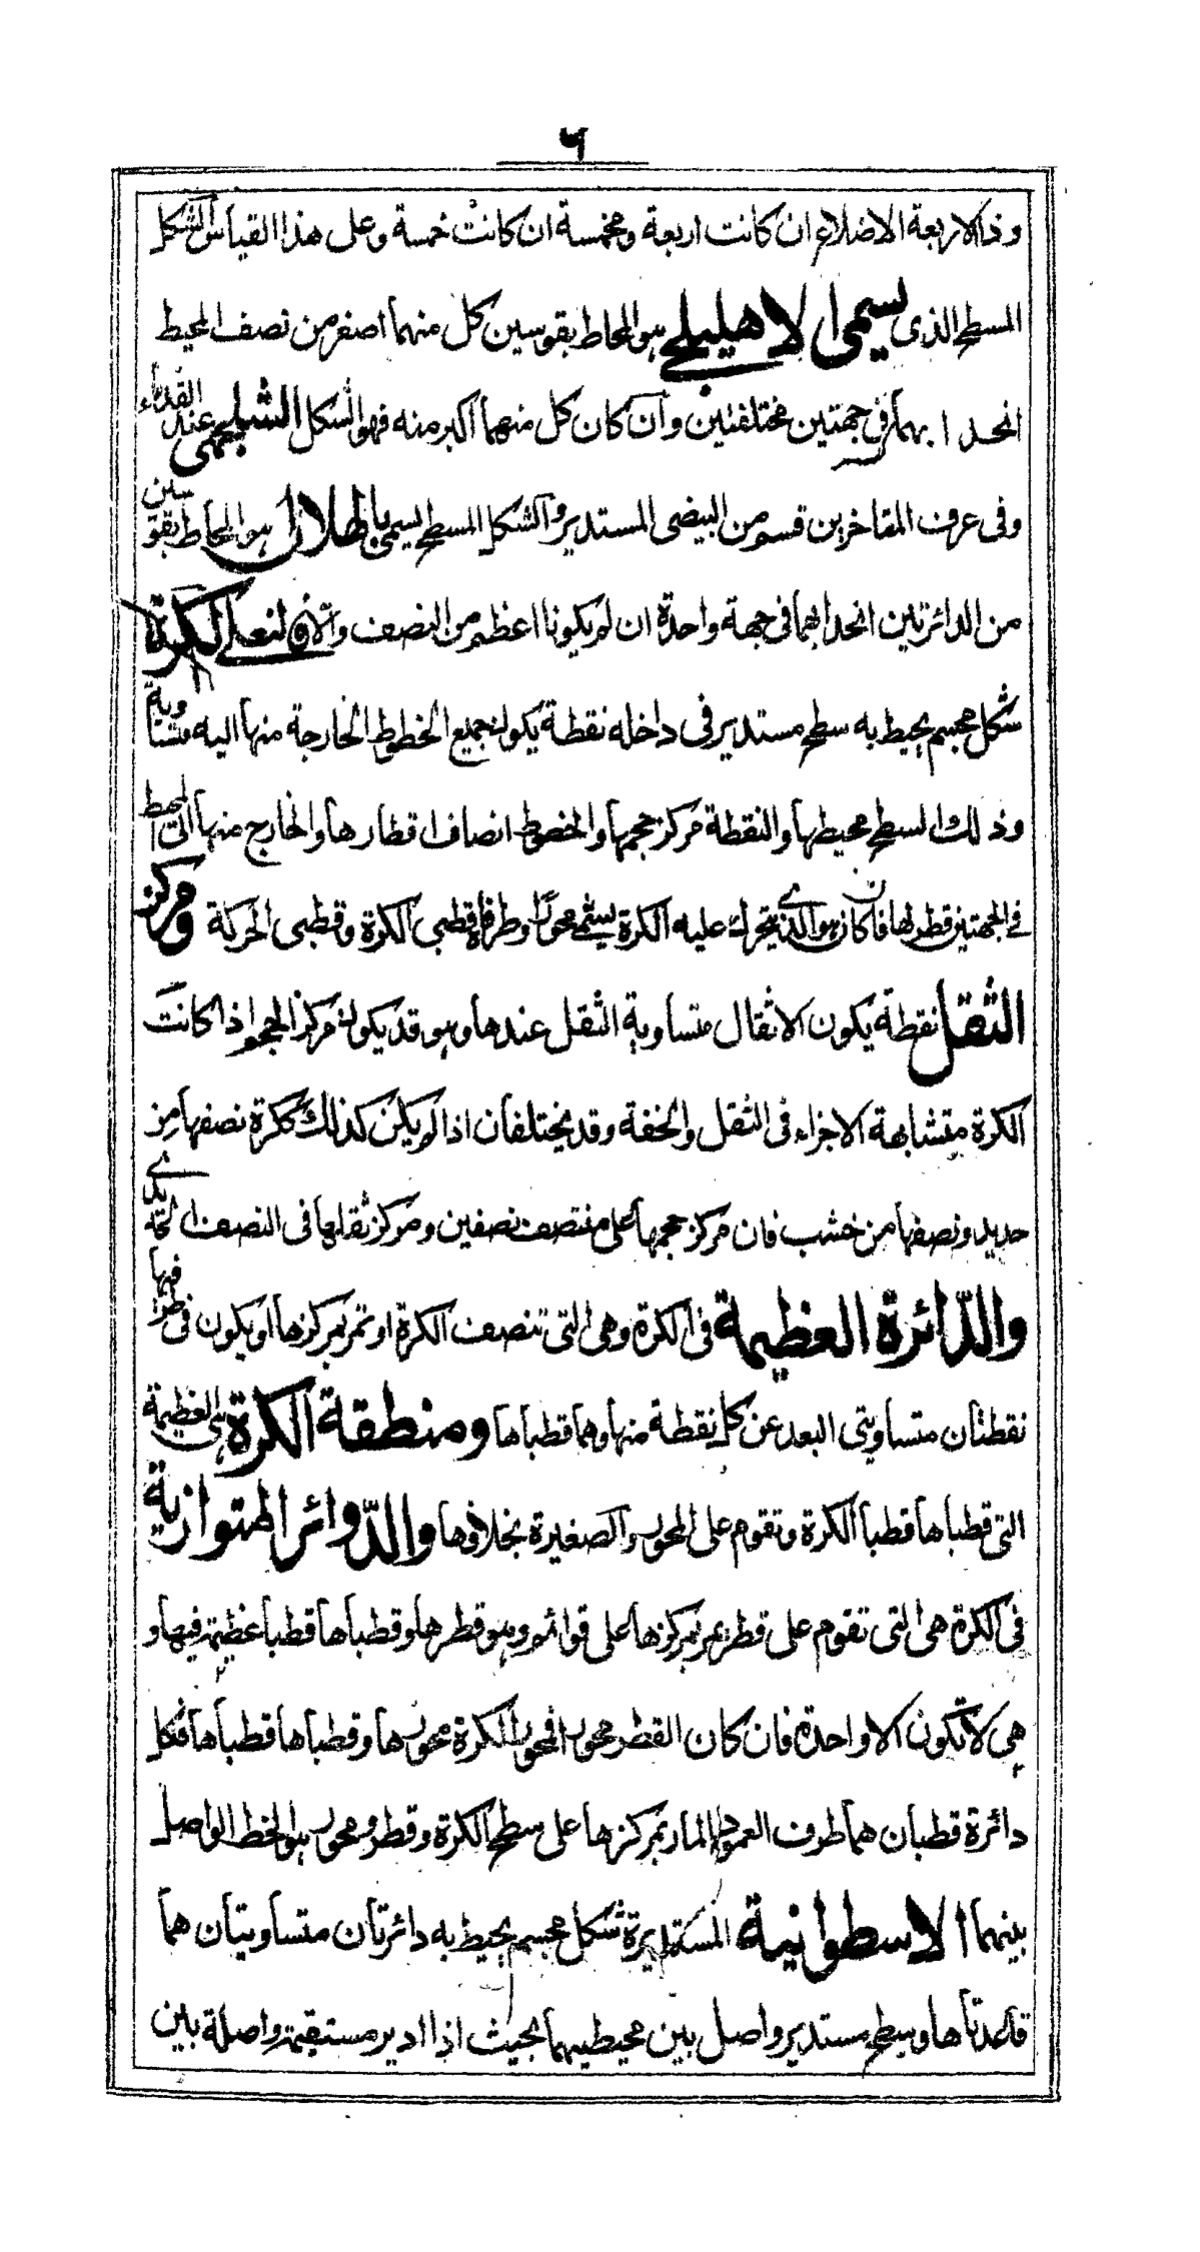 ٦
وذا الاربعة الاضلاع ان كانت اربعة ومخمسة ان كانت خمسة وعلى هذا القياس الشكل
المسطح الذى يسمى الاهليلجى هو المحاط بقوسين كل منهما اصغر من نصف المحيط
انحدابهما فى جهتين مختلفتين وان كان كل منهما اكبر منه فهو الشكل الشلجمى عند القدماء
وفى عرف المتاخرين قسم من البيضى المستدير والشكل المسطح يسمى بالهلالى هو المحاط بقوسين
من الدائرتين انحدابهما فى جهة واحدة ان لم يكونا اعظم من النصف والا فالنعلى الكرة
شكل مجسم يحيط به سطح مستدير فى داخله نقطة يكون جميع الخطوط الخارجة منها اليه متساوية
وذلك السطح محيطها والنقطة مركز حجمها والخطوط انصاف اقطارها والخارج منها الى المحيط
فى الجهتين قطر لها فان كان هو الذى يتحرك عليه الكرة يسمى محورا وطرفاه قطبى الكرة وقطبى الحركة ومركز
الثقل نقطة يكون الاثقال متساوية الثقل عندها وهو قد يكون مركز الحجم اذا كانت
الكرة متشابهة الاجزاء فى الثقل والخفة وقد يختلفان اذا لم يكن كذلك ككرة نصفها من
حديد ونصفها من خشب فان مركز حجمها على منتصف نصفين ومركز ثقلها فى النصف الحديدى
والدّائرة العظيمة فى الكرة وهى التى تنصف الكرة او تمر بمركزها او يكون فيها
نقطتان متساويتى البعد عن كل نقطة منها وهما قطباها ومنطقة الكرة هى العظيمة
التى قطباها قطبا الكرة وتقوم على المحور والصغيرة بخلافها والدّوائر المتوازية
فى الكرة هى التى تقوم على قطر يمر بمركزها على قوائم وهو قطرها وقطباها قطبا عظيمة فيها و
هى لا تكون الا واحدة فان كان القطر محورا فمحور الكرة محورها وقطباها قطباها فكل
دائرة قطبان هما طرف العمود المار بمركزها على سطح الكرة وقطر ومحور هو الخط الواصل
بينهما الاسطوانية المستديرة شكل مجسم يحيط به دائرتان متساويتان هما
قاعدتاها وسطح مستدير واصل بين محيطيهما بحيث اذا ادير مستقيمة واصلة بين